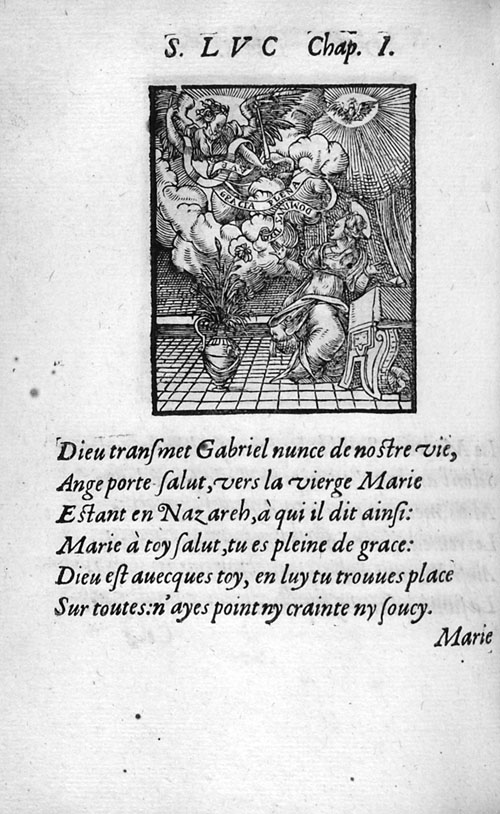 S. LVC Chap. I.
GRACIA PLENA
DOMINVS
Dieu transmet Gabriel nunce de nostre vie,
Ange porte-salut, vers la vierge Marie
Estant en Nazareh, à qui il dit ainsi:
Marie à toy salut, tu es pleine de grace:
Dieu est auecques toy, en luy tu trouues place
Sur toutes: n'ayes point ny crainte ny soucy.
Marie